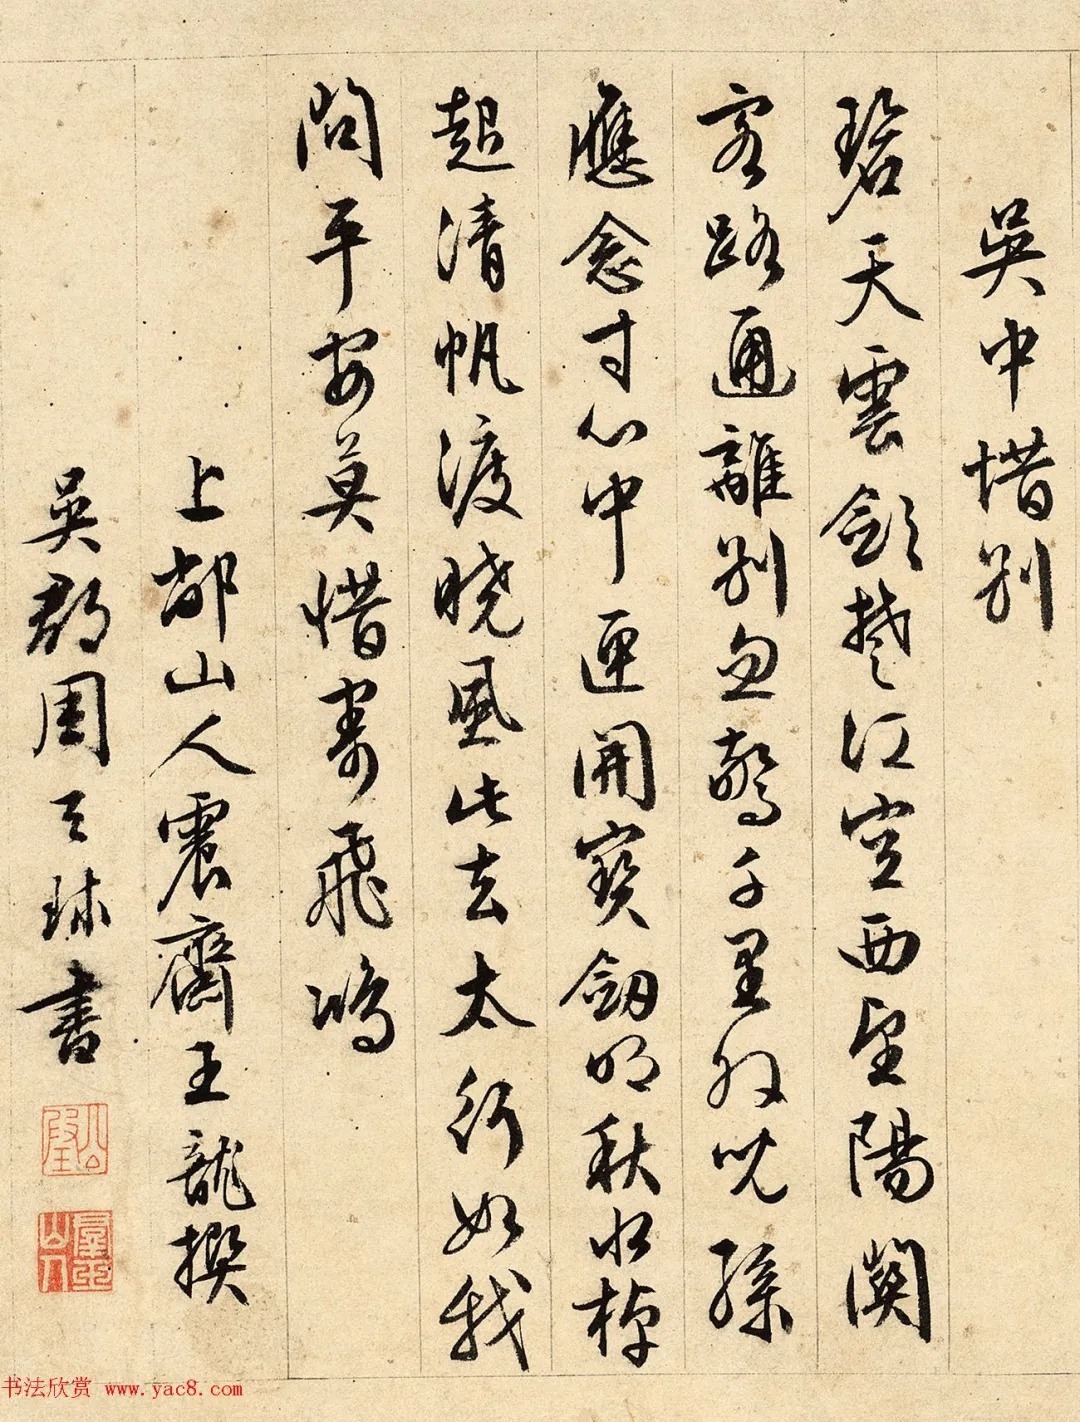 吳中惜別
碧天雲斂楚江空西望陽關
客路通離別忽驚千里外孫
應念寸心中匣開寶劍明秋水棹
起清帆渡曉風此去太行如我
問平安莫惜寄飛鴻
上都山人震齋王龍撰
吳郡周天球書
公瑕
群玉山人
书法欣赏 www.yac8.com